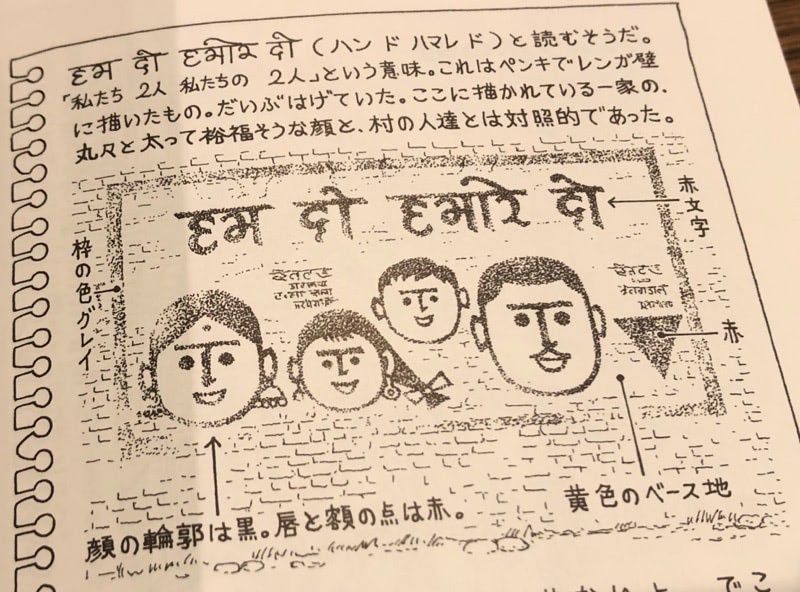 हम दो हमारे दो (ハンド ハマレド)と読むそうだ。
「私たち 2人 私たちの 2人」という意味。これはペンキでレンガ壁
に描いたもの。だいぶはげていた。ここに描かれている一家の、
丸々と太って裕福そうな顔と、村の人達とは対照的であった。
हम दो हमारे दो
赤文字
枠の色グレイ
赤
黄色のベース地
顔の輪郭は黒。唇と額の点は赤。